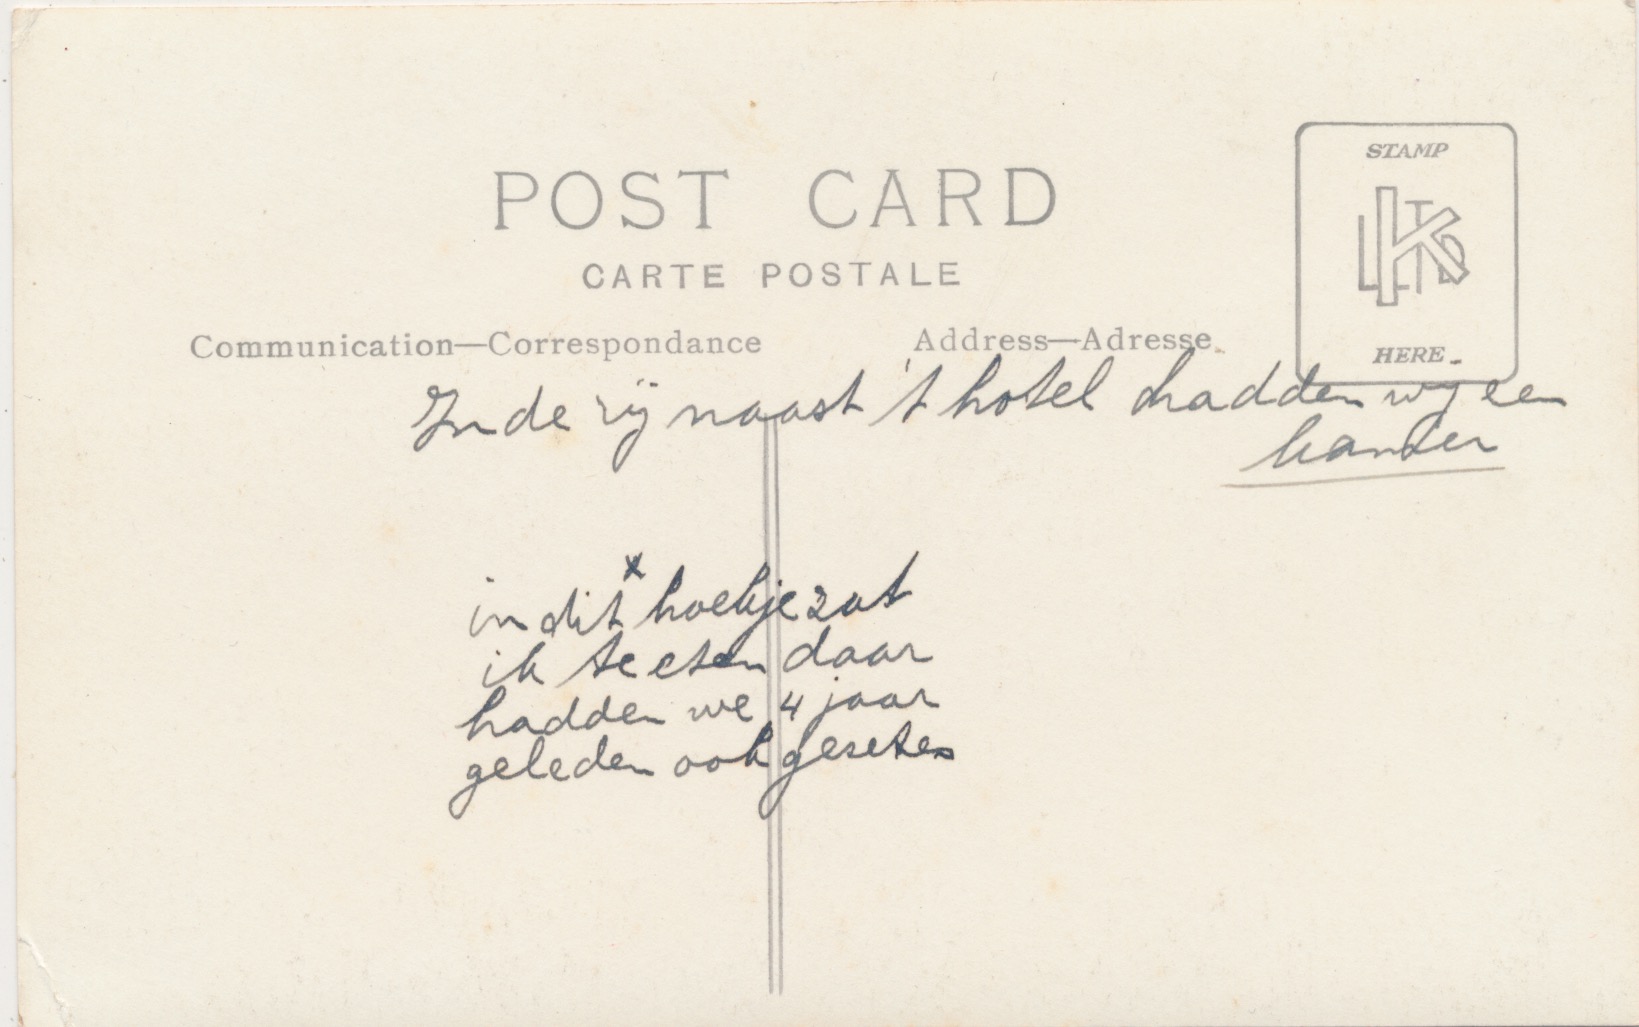 POST CARD
CARTE POSTALE
Communication—Correspondance
Address—Adresse
STAMP
K LTD
HERE
In de rij naast 't hotel hadden wij een
kamer
in dit x hoekje zat
ik te eten daar
hadden we 4 jaar
geleden ook gezeten